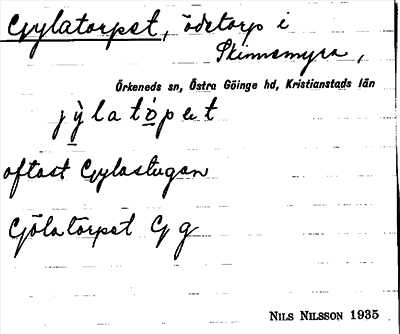 Gylatorpet, ödetorp i
Skinnsmyra,
Örkeneds sn, Östra Göinge hd, Kristianstads län
jỳlatòpet
oftast Gylastugan
Gölatorpet Gg
NILS NILSSON 1935